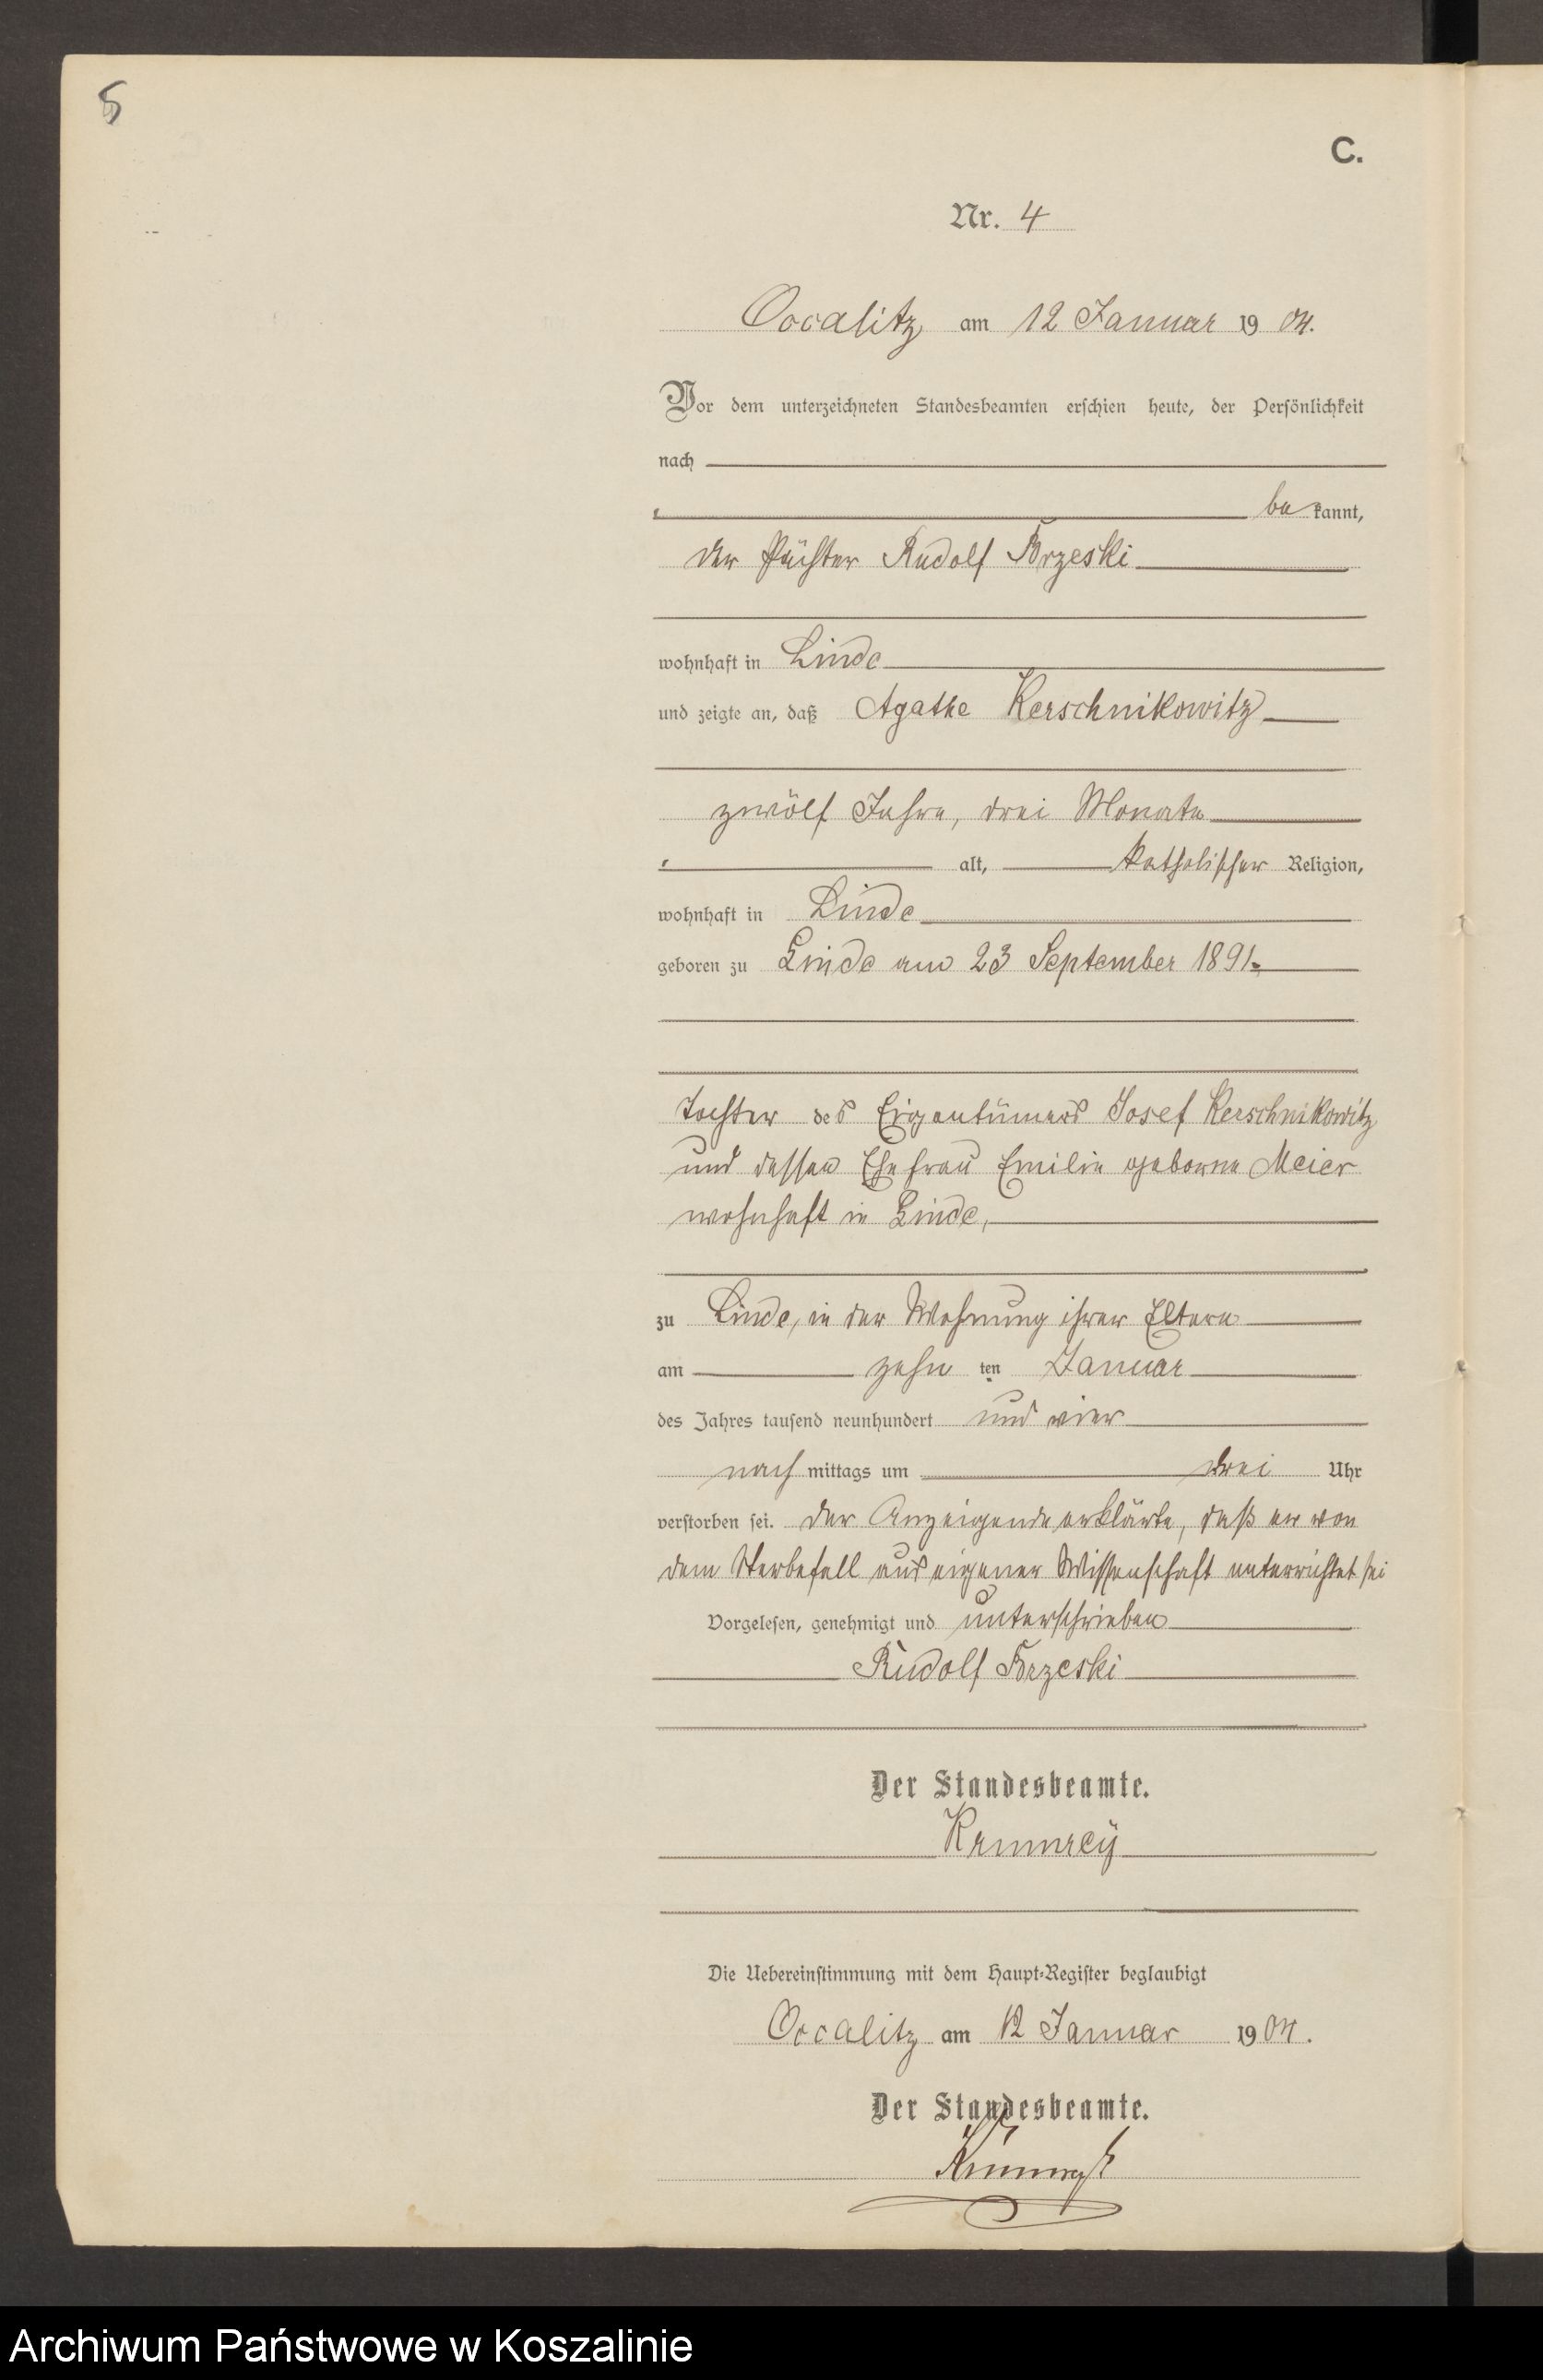 5
C.
Nr. 4
Occalitz am 12 Januar 1904.
Vor dem unterzeichneten Standesbeamten erschien heute, der Persönlichkeit
nach
bekannt,
der Pächter Rudolf Brzeski
wohnhaft in Linde
und zeigte an, daß Agathe Kerschnikowitz
zwölf Jahre, drei Monate
alt, katholischer Religion,
wohnhaft in Linde
geboren zu Linde am 23 September 1891
Tochter des Eigentümers Josef Kerschnikowitz
und dessen Ehefrau Emilie geborne Meier
wohnhaft in Linde,
zu Linde, in der Wohnung ihrer Eltern
am zehnten Januar
des Jahres tausend neunhundert und vier
nachmittags um drei Uhr
verstorben sei. Der Anzeigende erklärte, daß er von
dem Sterbefall aus eigener Wissenschaft unterrichtet sei
Vorgelesen, genehmigt und unterschrieben
Rudolf Brzeski
Der Standesbeamte.
Krumrey
Die Uebereinstimmung mit dem Haupt-Register beglaubigt
Occalitz am 12 Januar 1904.
Der Standesbeamte.
Krumrey
Archiwum Państwowe w Koszalinie